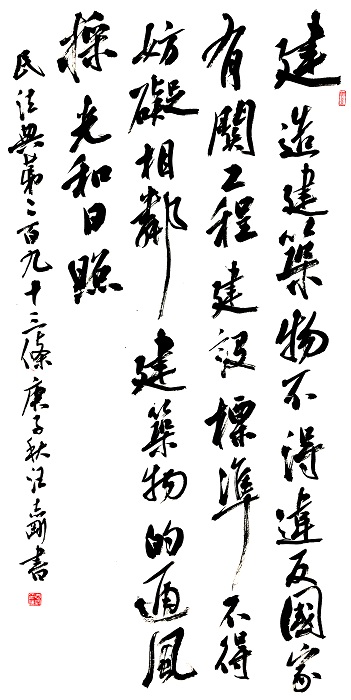 建造建築物不得違反國家
有關工程建設標準不得
妨礙相鄰建築物的通風
採光和日照
民法典第二百九十三條庚子秋汪志剛書